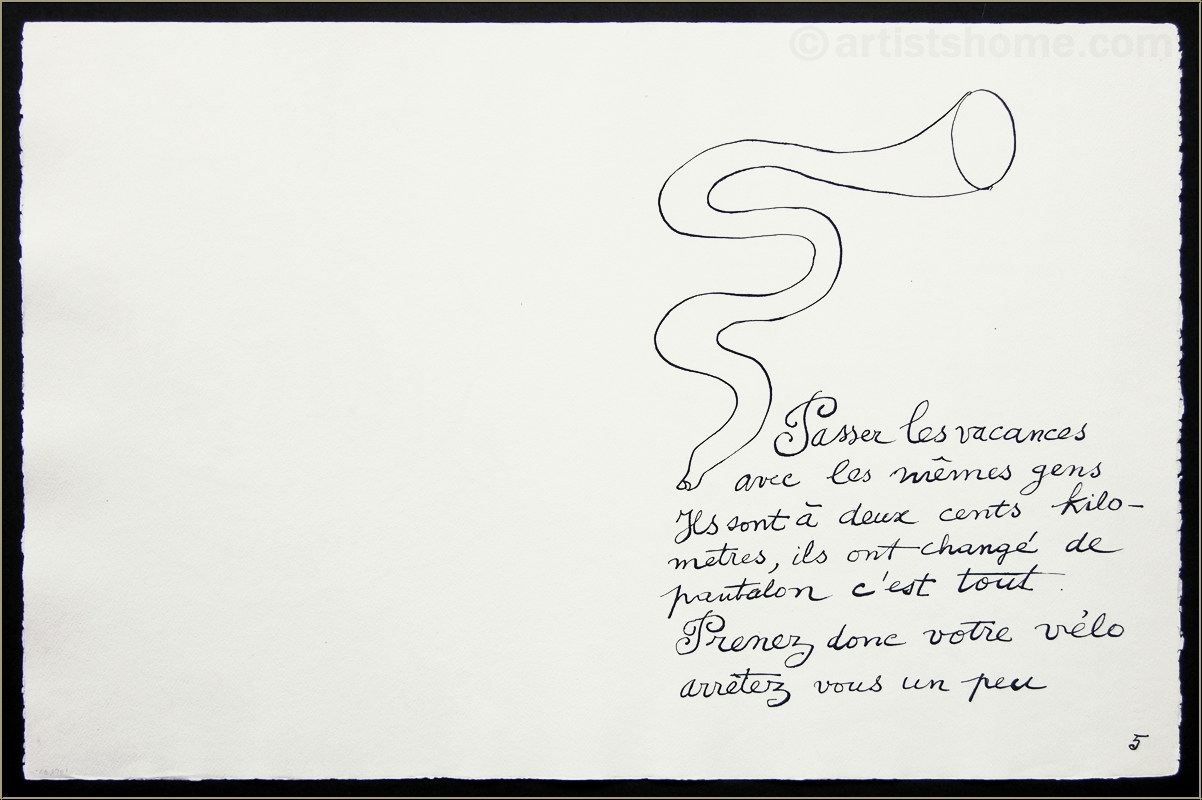 © artistshome.com
Passer les vacances
avec les mêmes gens
Ils sont à deux cents kilo-
metres, ils ont changé de
pantalon c'est tout.
Prenez donc votre vélo
arrêtez vous un peu
5